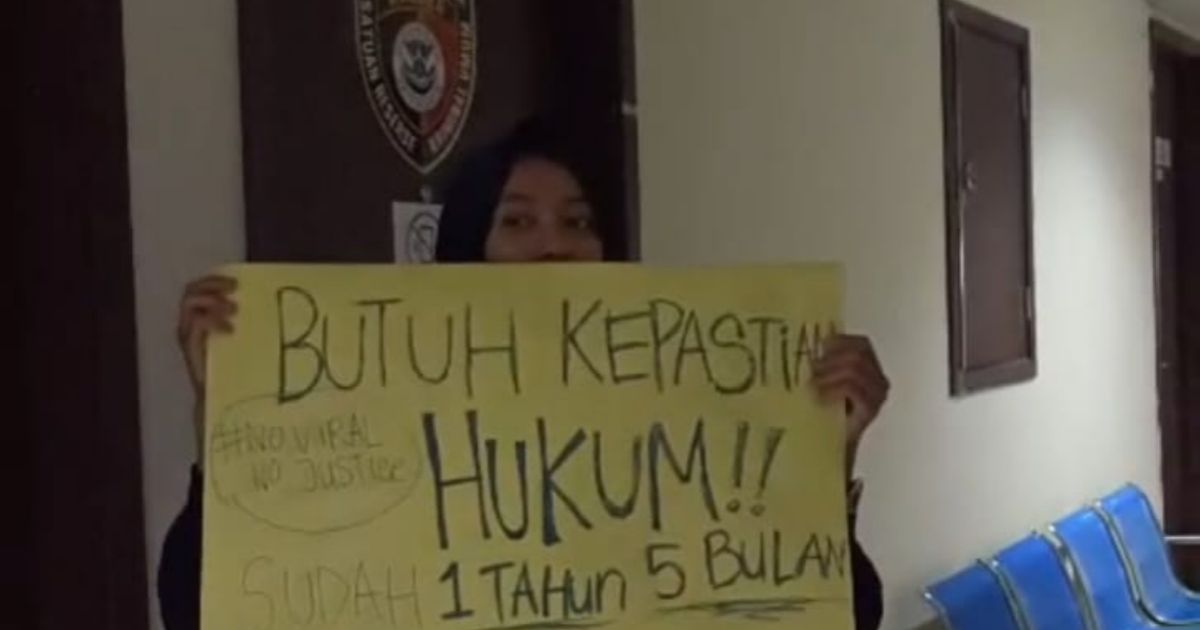 SATUAN RESERSE KRIMINAL UMUM
BUTUH KEPASTIAN
#NO VIRAL
NO JUSTICE
HUKUM!!
SUDAH 1 TAHUN 5 BULAN